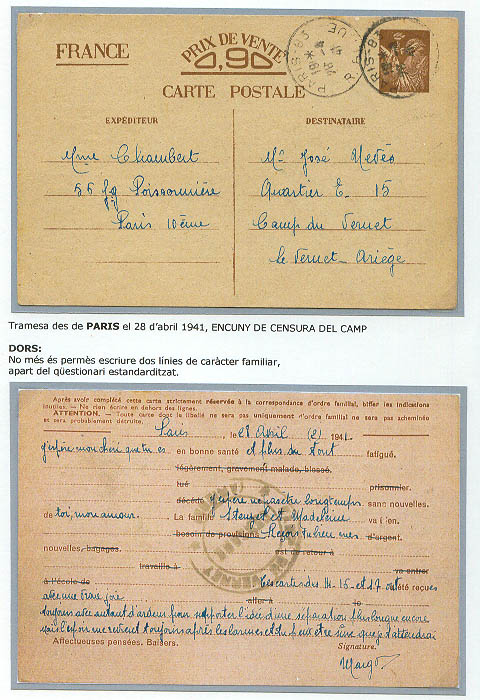 FRANCE
PRIX DE VENTE
0,90
CARTE POSTALE
EXPÉDITEUR
DESTINATAIRE
Mme Chambert
56 fg Poissonnière
Paris 10ème
Mr José
Quartier E. 15
Camp du Vernet
le Vernet - Ariège
Tramesa des de PARIS el 28 d'abril 1941, ENCUNY DE CENSURA DEL CAMP
DORS:
No més és permès escriure dos línies de caràcter familiar,
apart del qüestionari estandarditzat.
Après avoir complété cette carte strictement réservée à la correspondance d'ordre familial, biffer les indications
inutiles. — Ne rien écrire en dehors des lignes.
ATTENTION. — Toute carte dont le libellé ne sera pas uniquement d'ordre familial ne sera pas acheminée
et sera probablement détruite.
Paris, le 28 Avril (2) 1941
j'espère mon chéri que tu es en bonne santé et plus du tout fatigué.
légèrement, gravement malade, blessé.
tué prisonnier.
décédé j'espère ne pas être longtemps sans nouvelles.
de toi, mon amour. La famille et Madeleine va bien.
besoin de provisions d'argent.
nouvelles, bagages. est de retour à
travaille à va entrer
à l'école de Tes cartes des 14-16 et 17 ont été reçues
avec une vraie joie aller à le
toujours avec autant d'ardeur pour supporter l'idée d'une séparation plus longue encore
mais l'espoir me revient toujours après les larmes et tu peux être sûr que je t'attendrai
Affectueuses pensées. Baisers.
Signature.
Margot